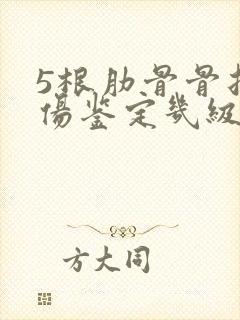 5根肋骨骨
傷鉴定幾級
方大同